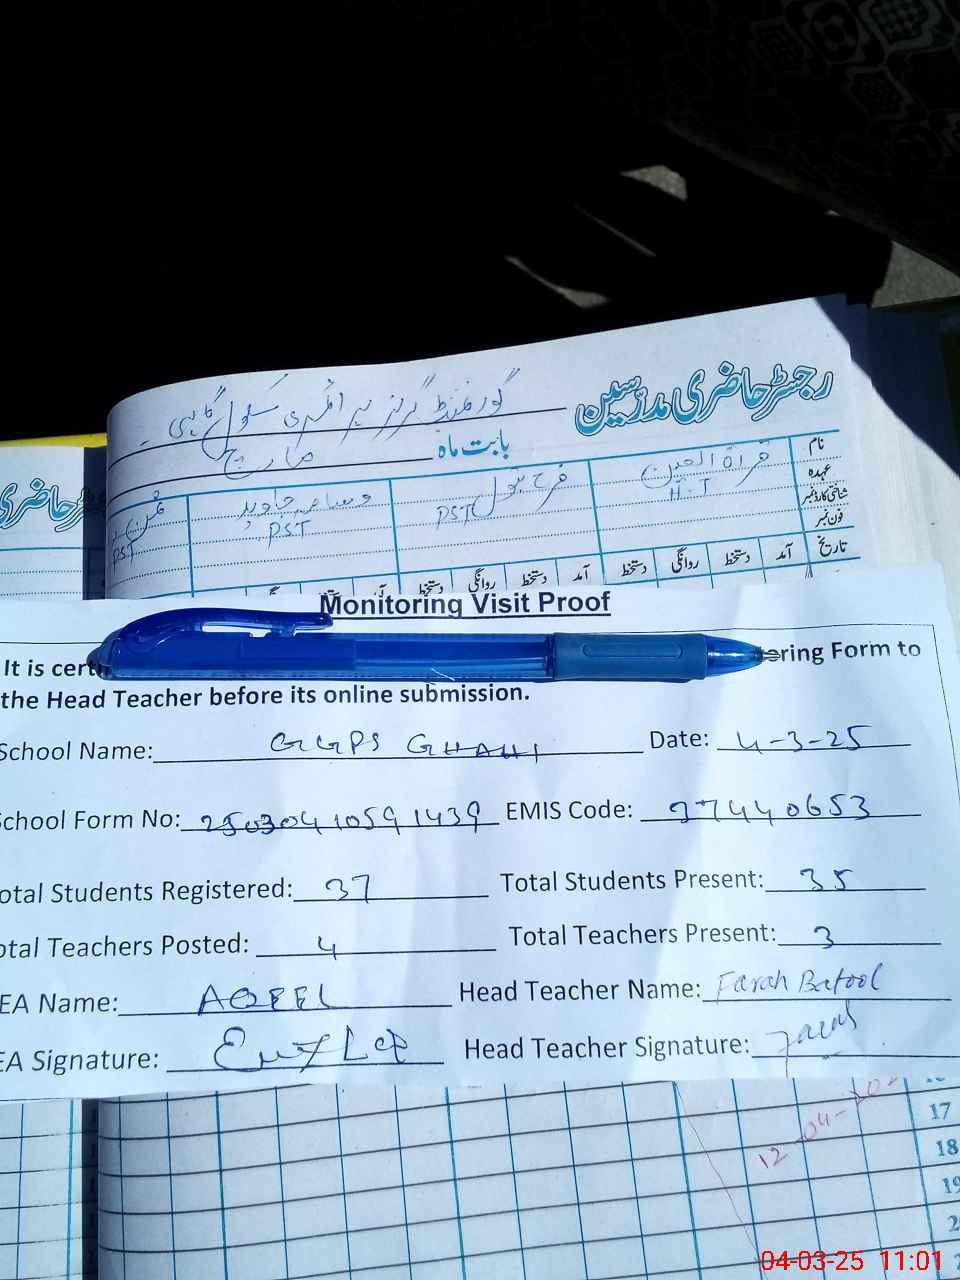 رجسٹر حاضری مدرسین
گورنمنٹ گرلز پرائمری سکول گاہی
بابت ماہ مارچ
نام قراۃ العین فرح بتول وسامہ جاوید
عہدہ H.T PST PST PST
شناختی کارڈ نمبر
فون نمبر
تاریخ آمد دستخط روانگی دستخط آمد دستخط روانگی دستخط
Monitoring Visit Proof
It is ring Form to
the Head Teacher before its online submission.
School Name: GGPS GHAHI Date: 4-3-25
School Form No: 25030410591439 EMIS Code: 37440653
otal Students Registered: 37 Total Students Present: 35
otal Teachers Posted: 4 Total Teachers Present: 3
EA Name: AQEEL Head Teacher Name: Farah Batool
EA Signature: Head Teacher Signature: Farah
17
18
19
04-03-25 11:01